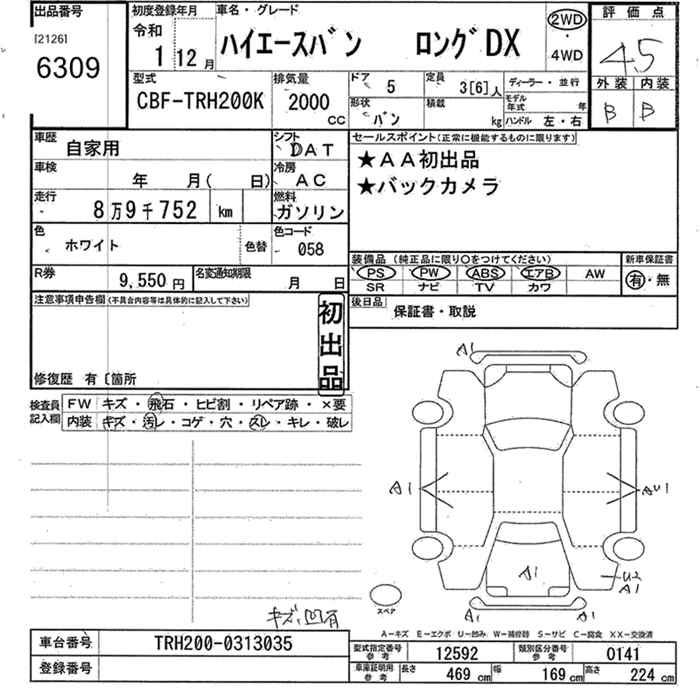 出品番号
[2126]
6309
初度登録年月
令和
1 12月
車名・グレード
ハイエースバン ロングDX
2WD
・
4WD
評価点
4.5
外装 内装
B B
型式
CBF-TRH200K
排気量
2000
cc
ドア 5
定員 3[6]人
形状 バン
積載 kg
ディーラー・並行
モデル年式 年
ハンドル 左・右
車歴 自家用
シフト DAT
車検 年 月( 日)
冷房 AC
走行 8万9千752 km
燃料 ガソリン
色 ホワイト 色替
色コード 058
R券 9,550円
名変通知期限 月 日
セールスポイント(正常に機能するものに限ります)
★AA初出品
★バックカメラ
装備品(純正品に限り○をつけてください)
PS PW ABS エアB AW
SR ナビ TV カワ
新車保証書
有・無
後日品 保証書・取説
注意事項申告欄(不具合内容等は具体的に記入して下さい)
初出品
修復歴 有〔箇所
検査員記入欄
FW キズ・飛石・ヒビ割・リペア跡・×要
内装 キズ・汚レ・コゲ・穴・スレ・キレ・破レ
A1
A1
AU1
A1
U2
A1
A1
A1
スペア
キズ、凹有
A-キズ E-エクボ U-凹み W-補修跡 S-サビ C-腐食 XX-交換済
車台番号 TRH200-0313035
登録番号
型式指定番号参考 12592
類別区分番号参考 0141
車庫証明用参考 長さ 469cm 幅 169cm 高さ 224cm